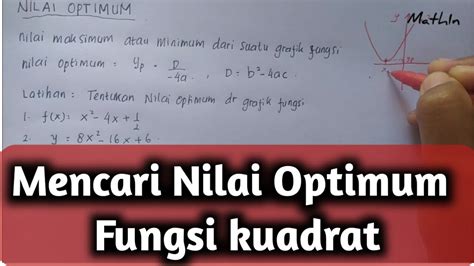 NILAI OPTIMUM
MathIn
nilai maksimum atau minimum dari suatu grafik fungsi
nilai optimum = yp = D/-4a , D = b²-4ac
Latihan : Tentukan Nilai Optimum dr grafik fungsi
1. f(x) = x²-4x+1/2
2. y = 8x²-16x+6
Mencari Nilai Optimum
Fungsi kuadrat